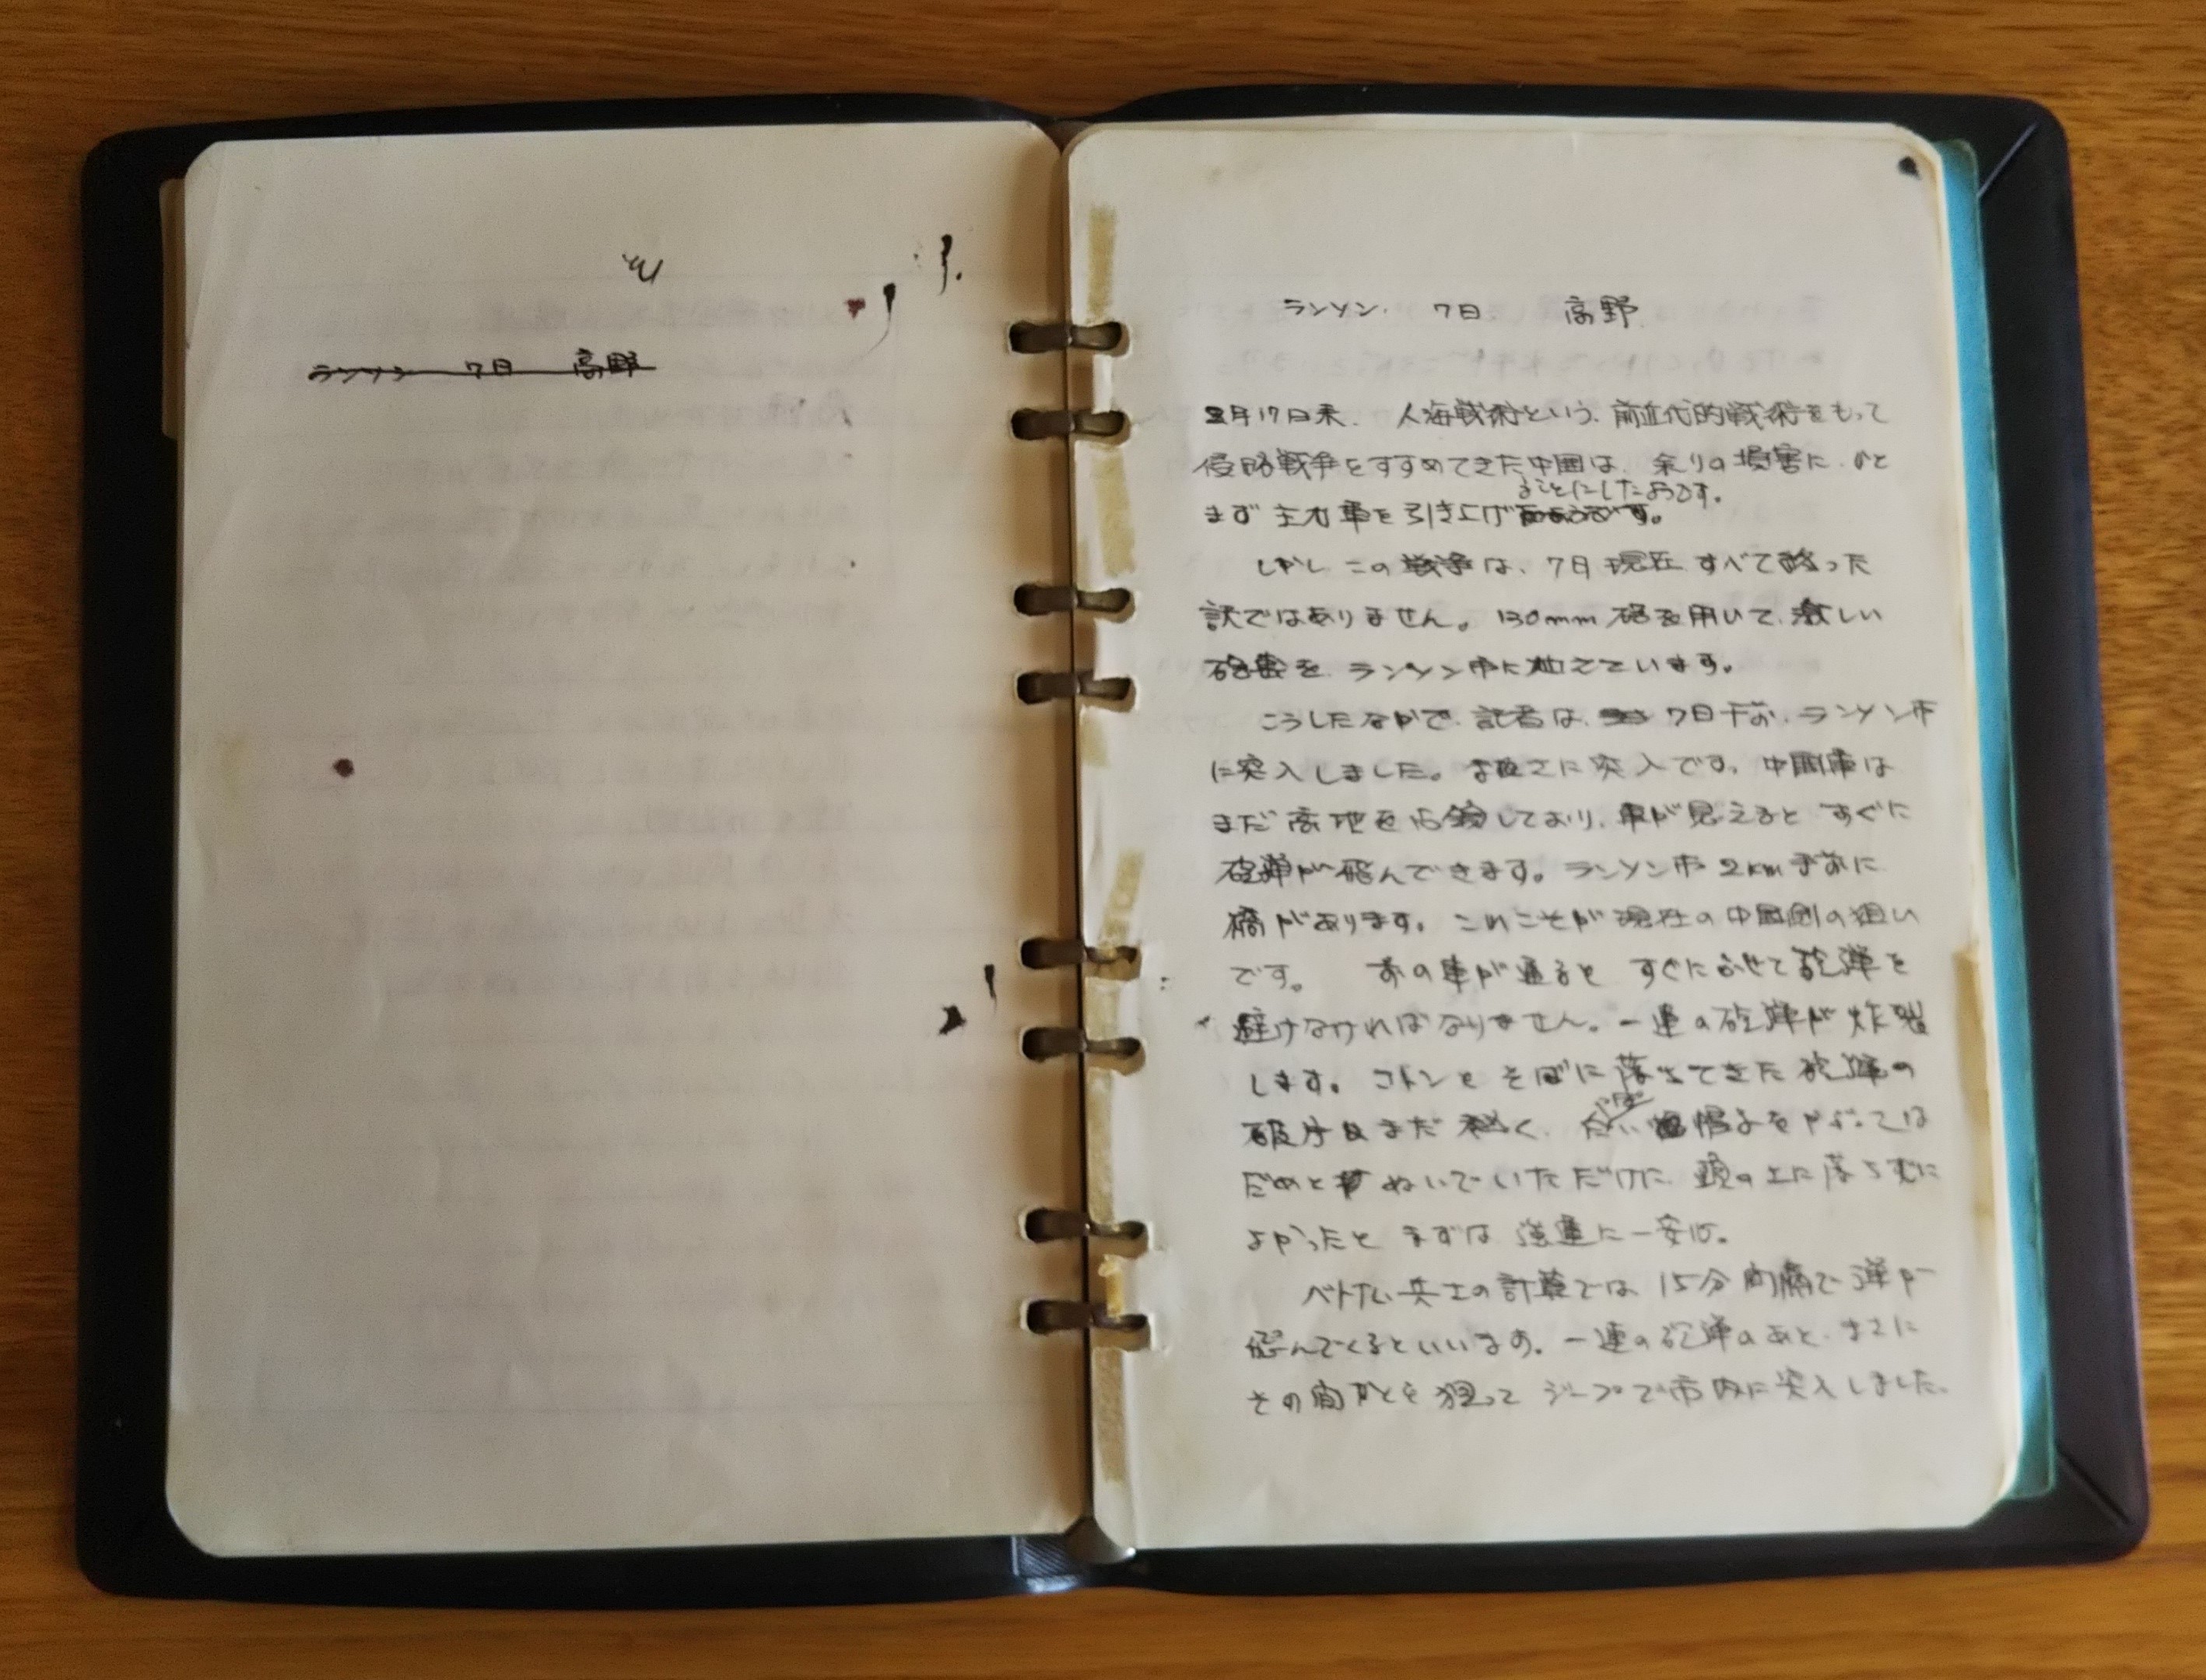 ランソン 7日 高野
ランソン. 7日 高野
2月17日来、人海戦術という、前近代的戦術をもって
侵略戦争をすすめてきた中国は、余りの損害に、ひと
ることにしたようです。
まず主力軍を引き上げ
しかしこの戦争は、7日現在すべて終った
訳ではありません。130mm砲を用いて、激しい
砲撃を、ランソン市に加えています。
こうしたなかで、記者は、7日午前、ランソン市
に突入しました。まさに突入です。中国軍は
まだ高地を占領しており、車が見えるとすぐに
砲弾が飛んできます。ランソン市2km手前に
橋があります。これこそが現在の中国側の狙い
です。 車が通るとすぐにふせて砲弾を
避けなければなりません。一連の砲弾が炸裂
します。コトンとそばに落ちてきた砲弾の
破片はまだ熱く、白い帽子をかぶっては
だめとぬいでいただけに、頭の上に落ちずに
よかったとまずは強運に一安心。
ベトナム兵士の計算では、15分間隔で弾が
飛んでくるといいます。一連の砲弾のあと、まさに
その間かくを狙ってジープで市内に突入しました。